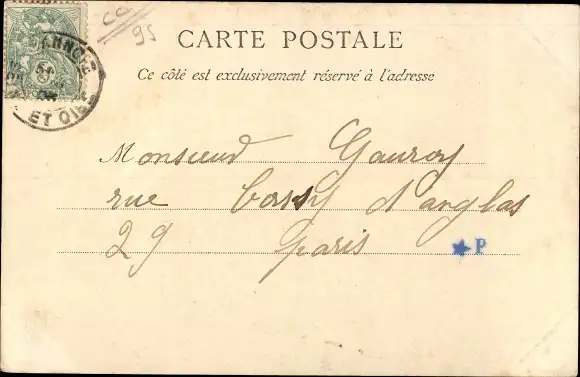 CARTE POSTALE
Ce côté est exclusivement réservé à l'adresse
95
ET OISE
Monsieur Gauroy
rue Bossy d'anglas
29 Paris
P